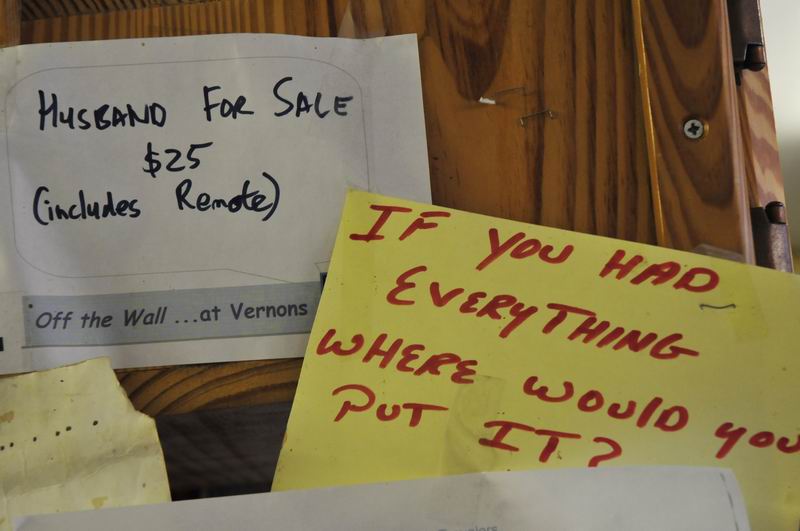 HUSBAND FOR SALE
$25
(includes Remote)
Off the Wall ...at Vernons
IF YOU HAD
EVERYTHING
WHERE WOULD YOU
PUT IT?